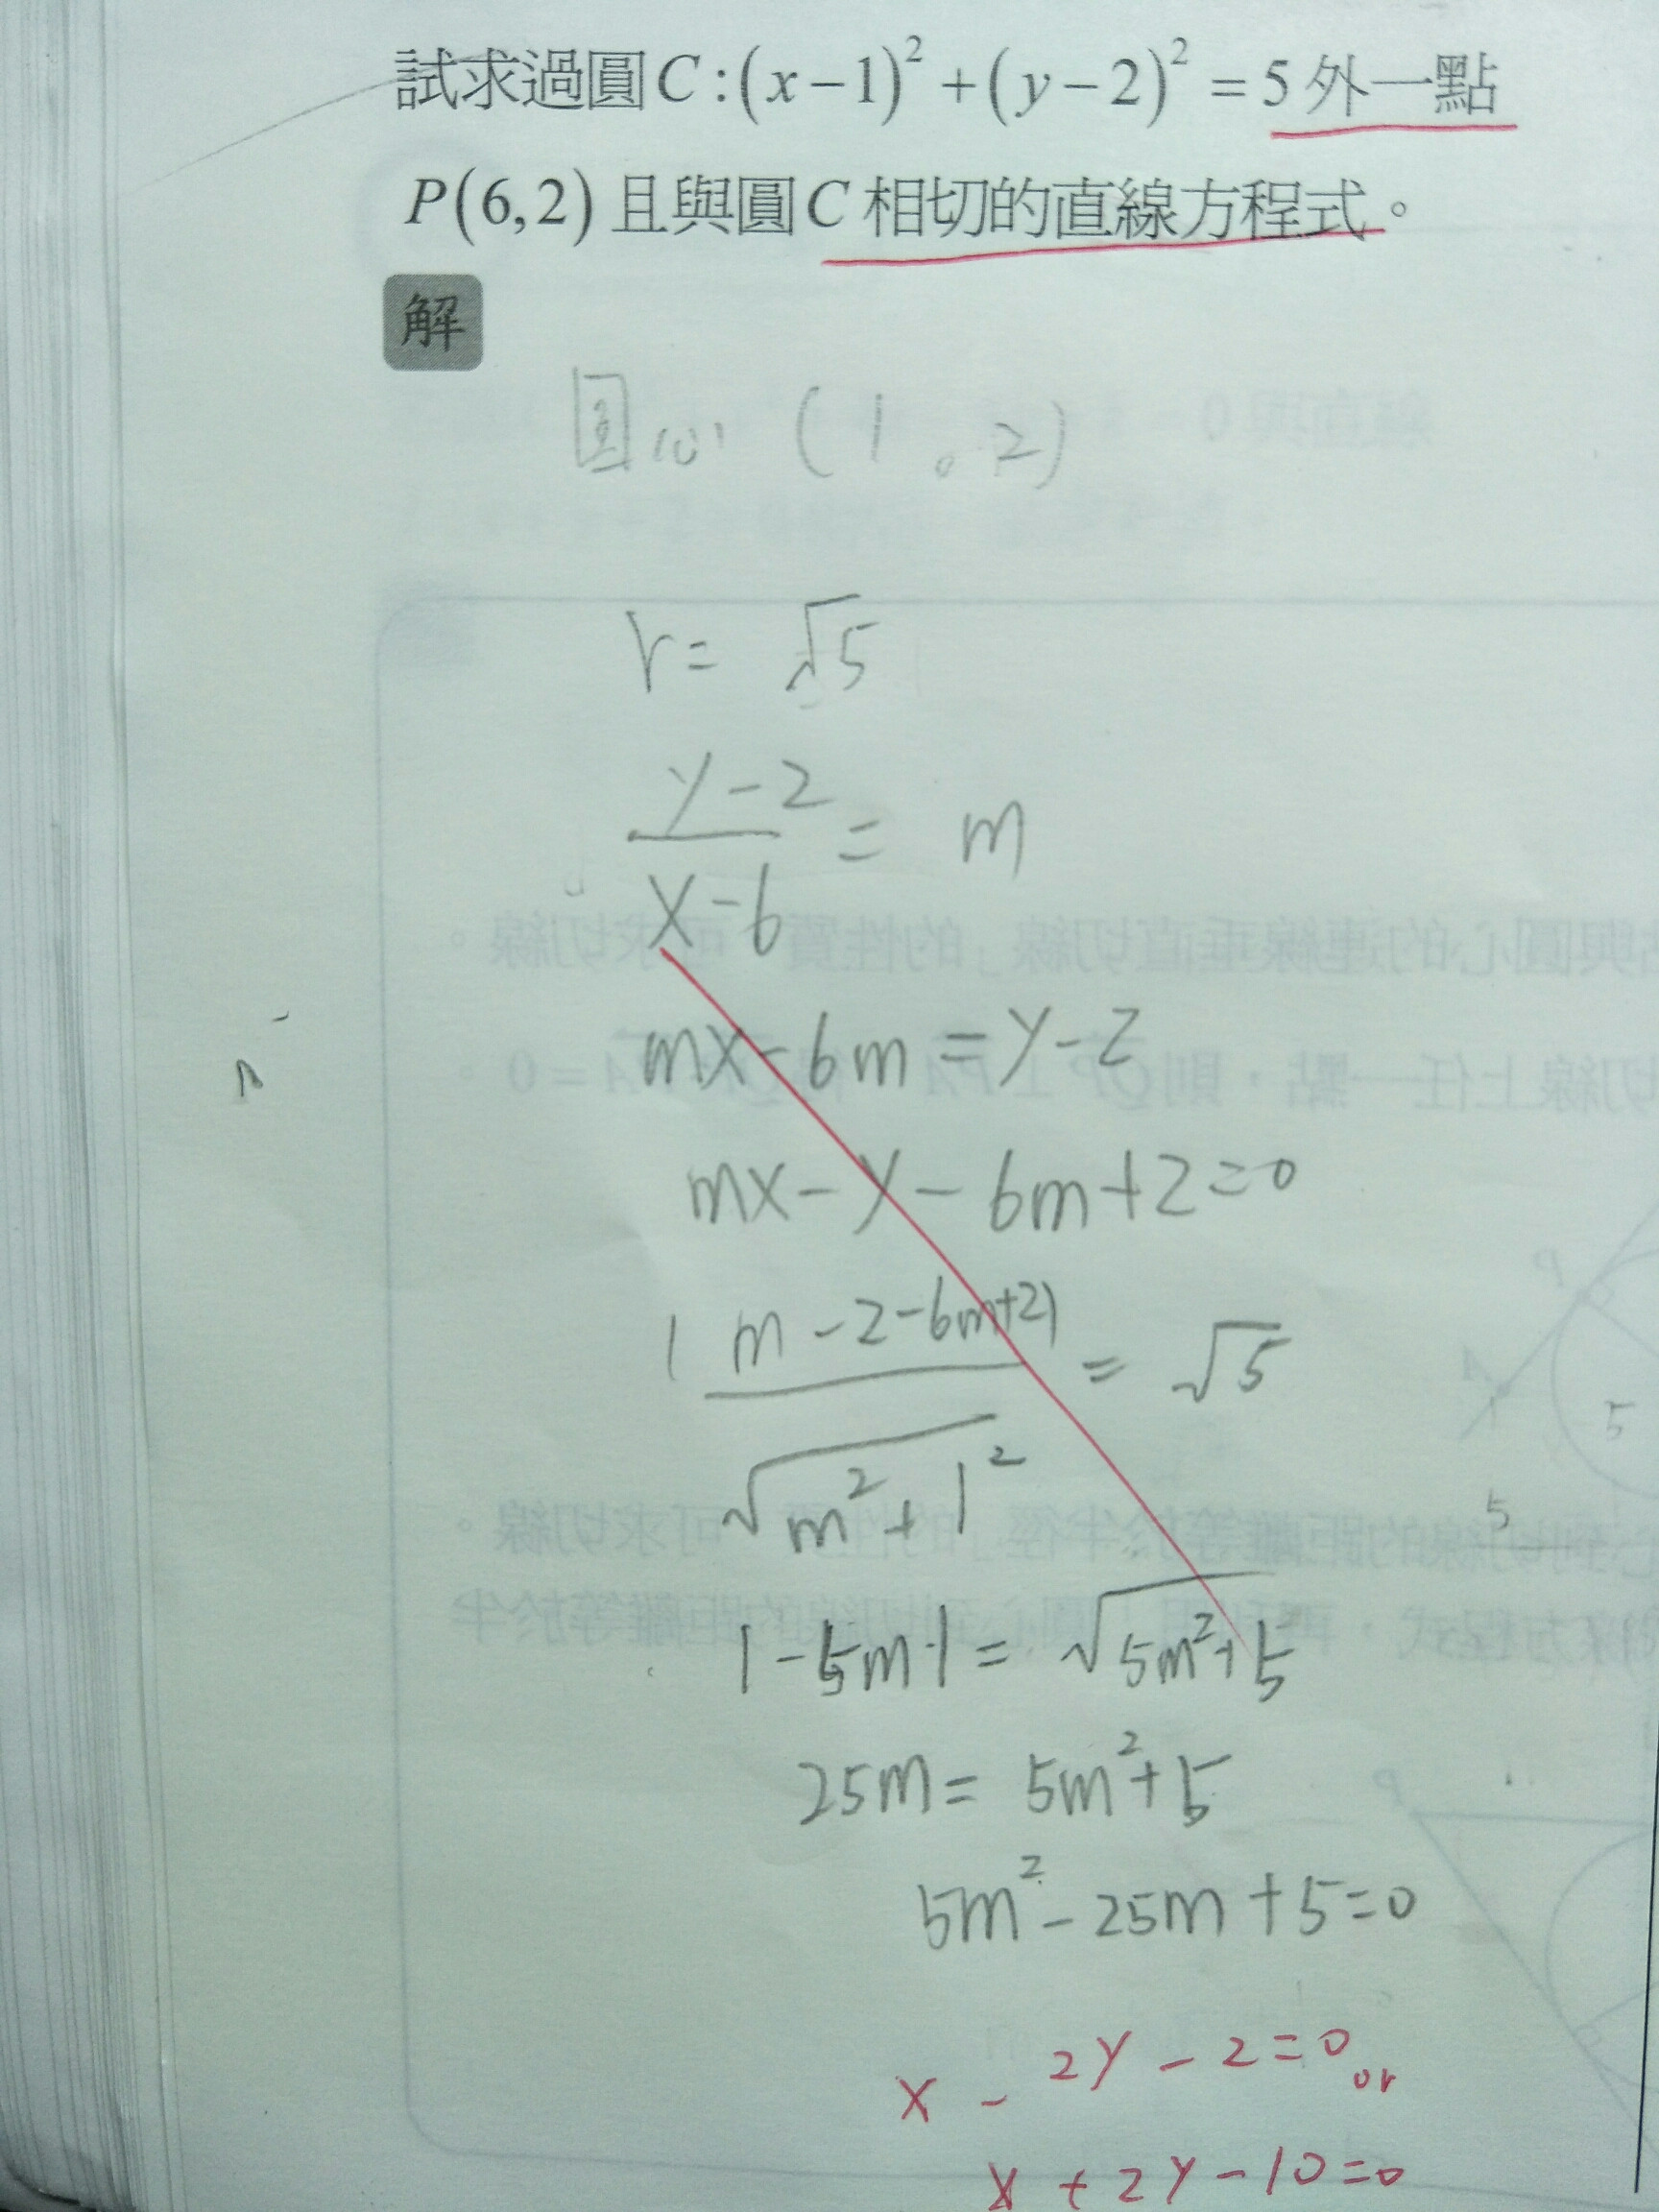 試求過圓C:(x-1)²+(y-2)²=5外一點
P(6,2)且與圓C相切的直線方程式。
解
圓心(1。2)
r=√5
y-2
/
x-6
= m
mx-6m=y-2
mx-y-6m+2=0
|m-2-6m+2|
/
√m²+1²
= √5
|-5m|=√5m²+5
25m=5m²+5
5m²-25m+5=0
x-2y-2=0 or
x+2y-10=0